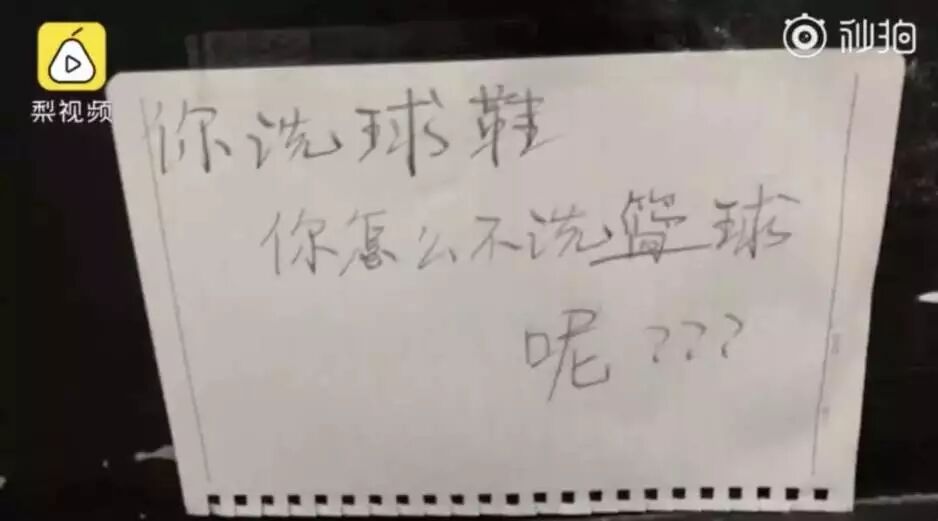 梨视频
秒拍
你洗球鞋
你怎么不洗篮球
呢???